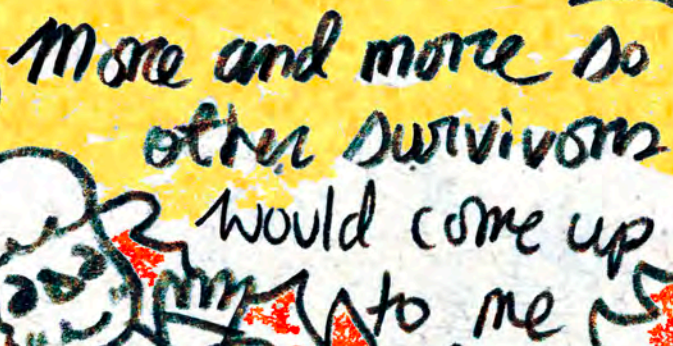 More and more so
other survivors
would come up
to me